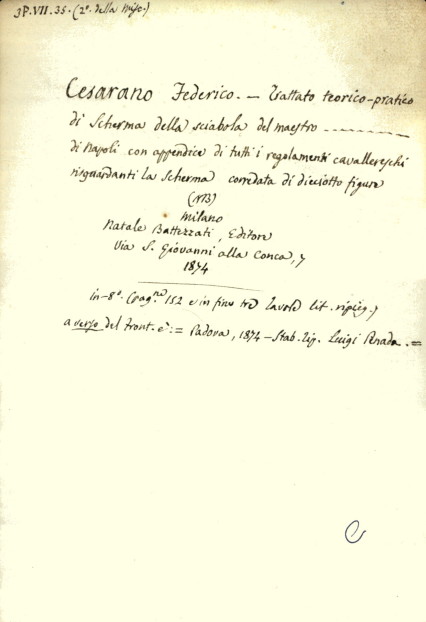 3P.VII.35. (2ª della Misc.)
Cesarano Federico. — Trattato teorico-pratico
di Scherma della sciabola del maestro ----------
di Napoli con appendice di tutti i regolamenti cavallereschi
risguardanti la Scherma corredata di dieciotto figure
Milano
Natale Battezzati, Editore
Via S. Giovanni alla Conca, 7
1874
in-8°. (pag.ne 152 e in fine tre tavole lit. ripieg.)
a verso del front. è: = Padova, 1874 – Stab. tip. Luigi Penada. =
C